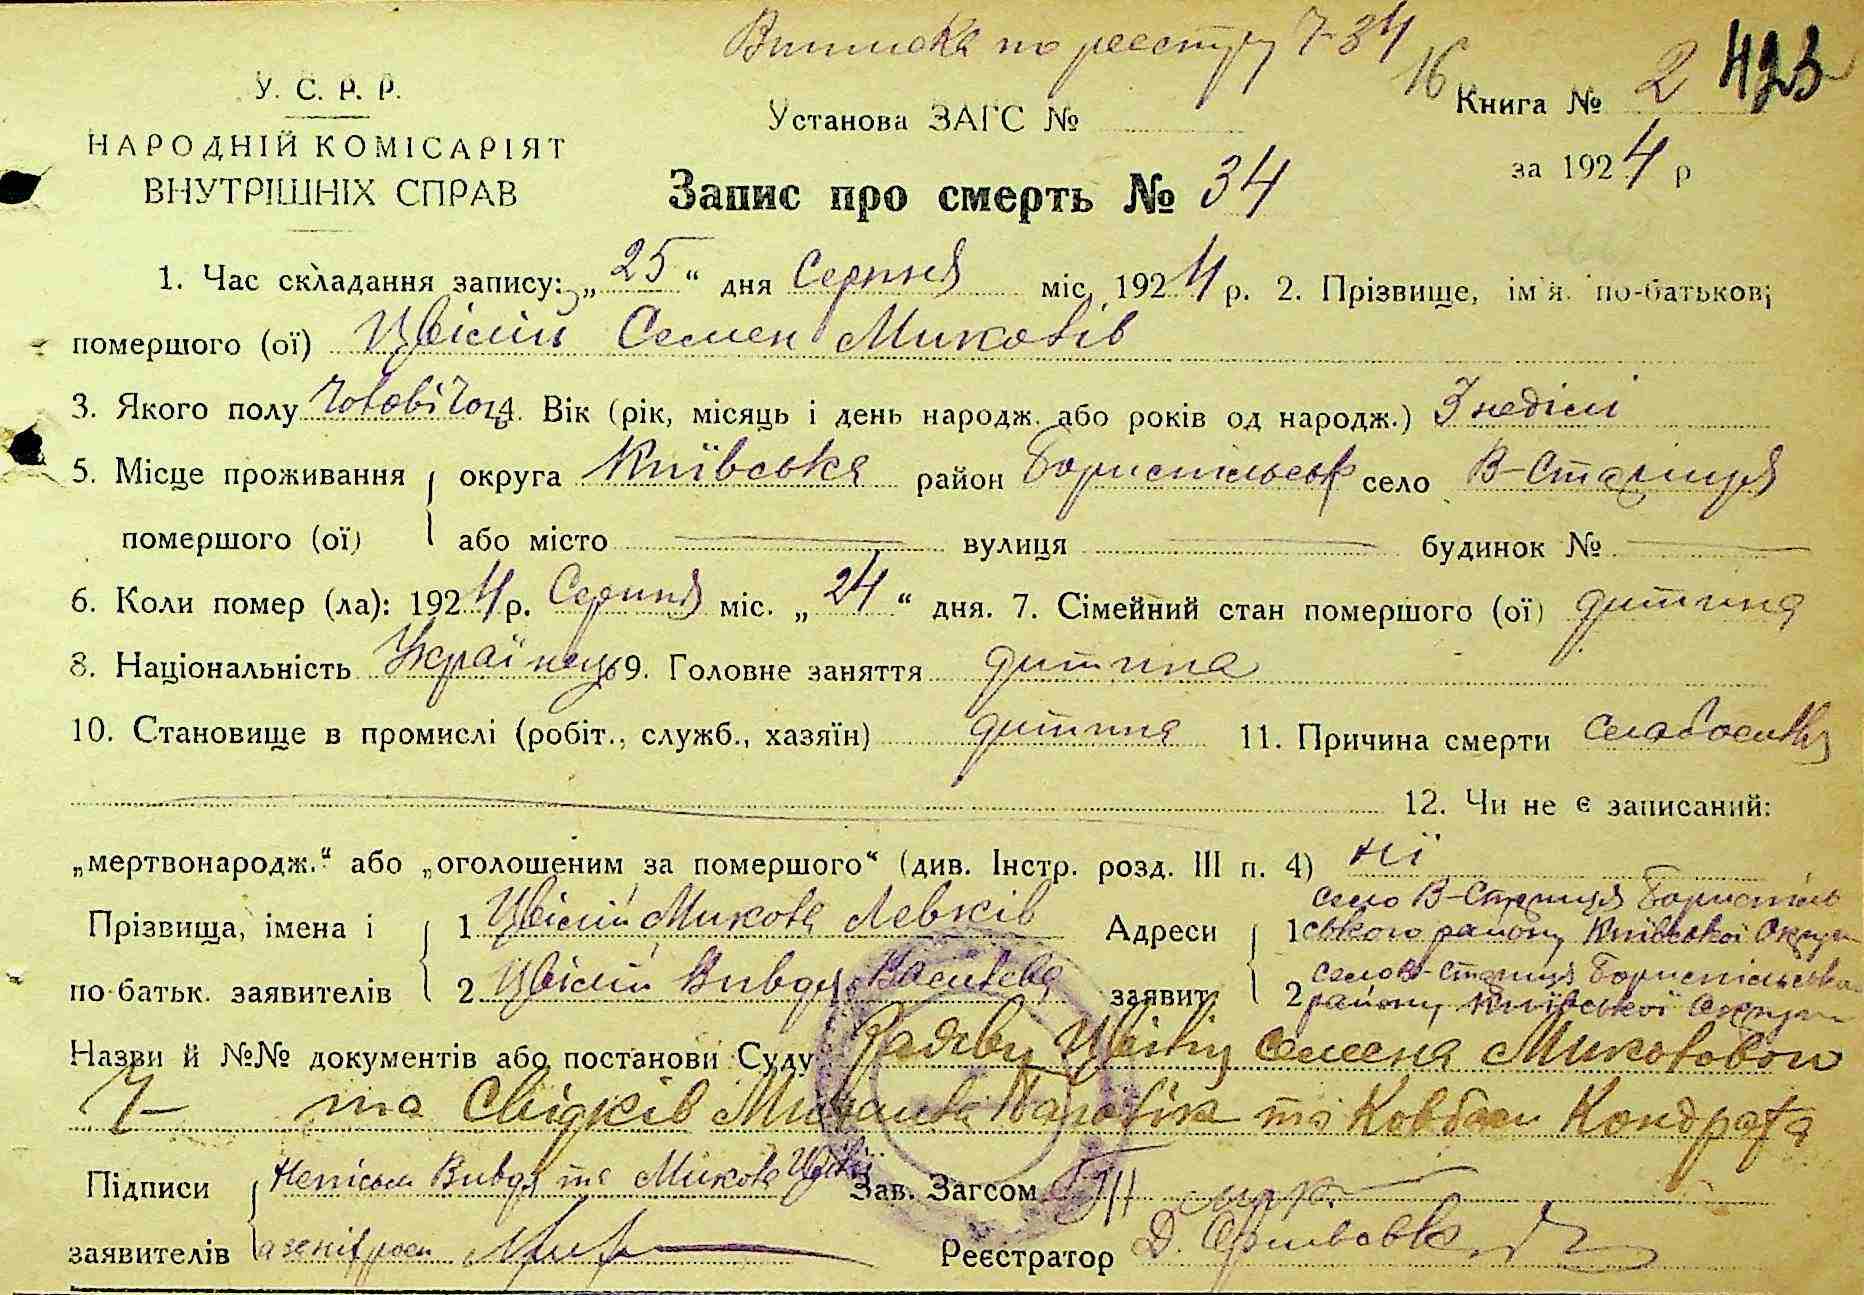 Виписка по реестру 7-34
16
423
У. С. Р. Р.
НАРОДНІЙ КОМІСАРІЯТ
ВНУТРІШНІХ СПРАВ
Установа ЗАГС №
Книга № 2
за 1924 р
Запис про смерть № 34
1. Час складання запису: „25“ дня Серпня міс. 1924 р. 2. Прізвище, ім'я по-батькові
помершого (ої) Цвілій Семен Миколів
3. Якого полу чоловічог 4. Вік (рік, місяць і день народж. або років од народж.) 3 неділі
5. Місце проживання округа Київська район Бориспільськ село В-Стариця
помершого (ої) або місто — вулиця — будинок № —
6. Коли помер (ла): 1924 р. Серпня міс. „24“ дня. 7. Сімейний стан помершого (ої) дитина
8. Національність Українець 9. Головне заняття дитина
10. Становище в промислі (робіт., служб., хазяїн) дитина 11. Причина смерти
12. Чи не є записаний:
„мертвонародж.“ або „оголошеним за помершого“ (див. Інстр. розд. III п. 4) ні
Прізвища, імена і 1 Цвілій Микола Левків Адреси 1 село В-Стариця Бориспіль
ського району Київської Округи
по-батьк. заявителів 2 Цвілій Вивдя Василева заявит. 2 село В-Стариця Бориспільська
району Київської Округи
Назви й №№ документів або постанови Суду Заяву Семена Миколовои
та Свідків та Ковбаси Кондрата
Підписи Вивдя та Микола Цвілій Зав. Загсом
заявителів Реєстратор Д.